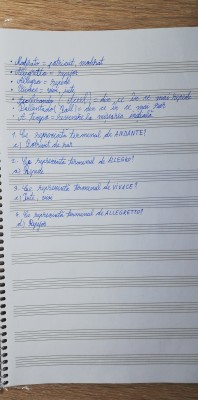 • Moderato = potrivit, moderat
• Allegretto = repejor
• Allegro = repede
• Vivace = vioi, iute
• Accelerando (Accel.) = din ce în ce mai repede
• Rallentado (Rall.) = din ce în ce mai rar
• A Tempo = revenire la mișcarea inițială
1. Ce reprezintă termenul de ANDANTE?
a) Potrivit de rar
2. Ce reprezintă termenul de ALLEGRO?
a) Repede
3. Ce reprezintă termenul de VIVACE?
a) Iute, vioi
4. Ce reprezintă termenul de ALLEGRETTO?
a) Repejor